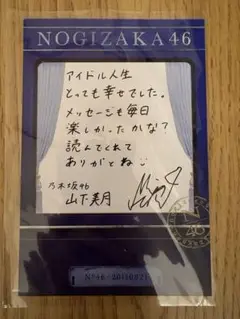 NOGIZAKA46
アイドル人生
とっても幸せでした。
メッセージも毎日
楽しかったかな?
読んでくれて
ありがとね
乃木坂46
山下美月